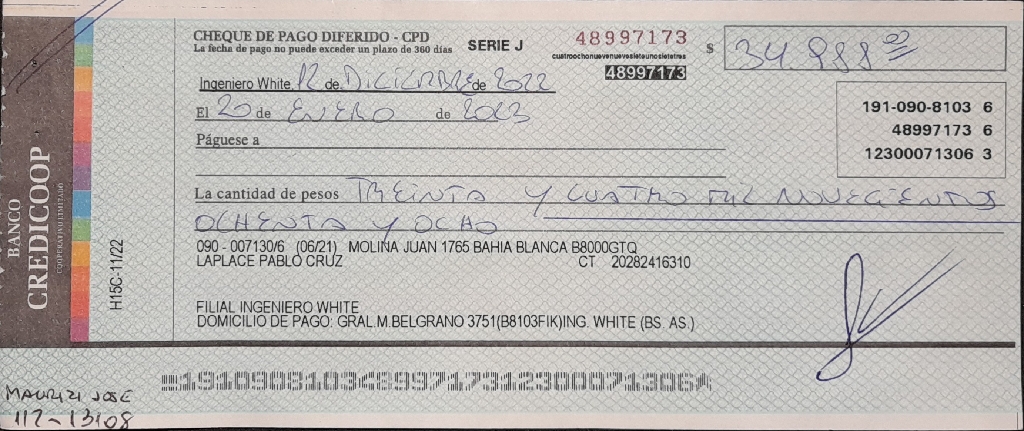 CHEQUE DE PAGO DIFERIDO - CPD
La fecha de pago no puede exceder un plazo de 360 días
SERIE J
48997173
cuatroochonuevenuevesieteunosietetres
48997173
$ 34.988 00
Ingeniero White, 12 de DICIEMBRE de 2022
El 20 de ENERO de 2023
191-090-8103 6
48997173 6
12300071306 3
Páguese a
La cantidad de pesos TREINTA Y CUATRO MIL NOVECIENTOS
OCHENTA Y OCHO
090 - 007130/6 (06/21) MOLINA JUAN 1765 BAHIA BLANCA B8000GTQ
LAPLACE PABLO CRUZ CT 20282416310
FILIAL INGENIERO WHITE
DOMICILIO DE PAGO: GRAL.M.BELGRANO 3751(B8103FIK)ING. WHITE (BS. AS.)
BANCO
CREDICOOP
COOPERATIVO LIMITADO
H15C-11/22
19109081034899717312300071306
MAURIZI JOSE
112-13108